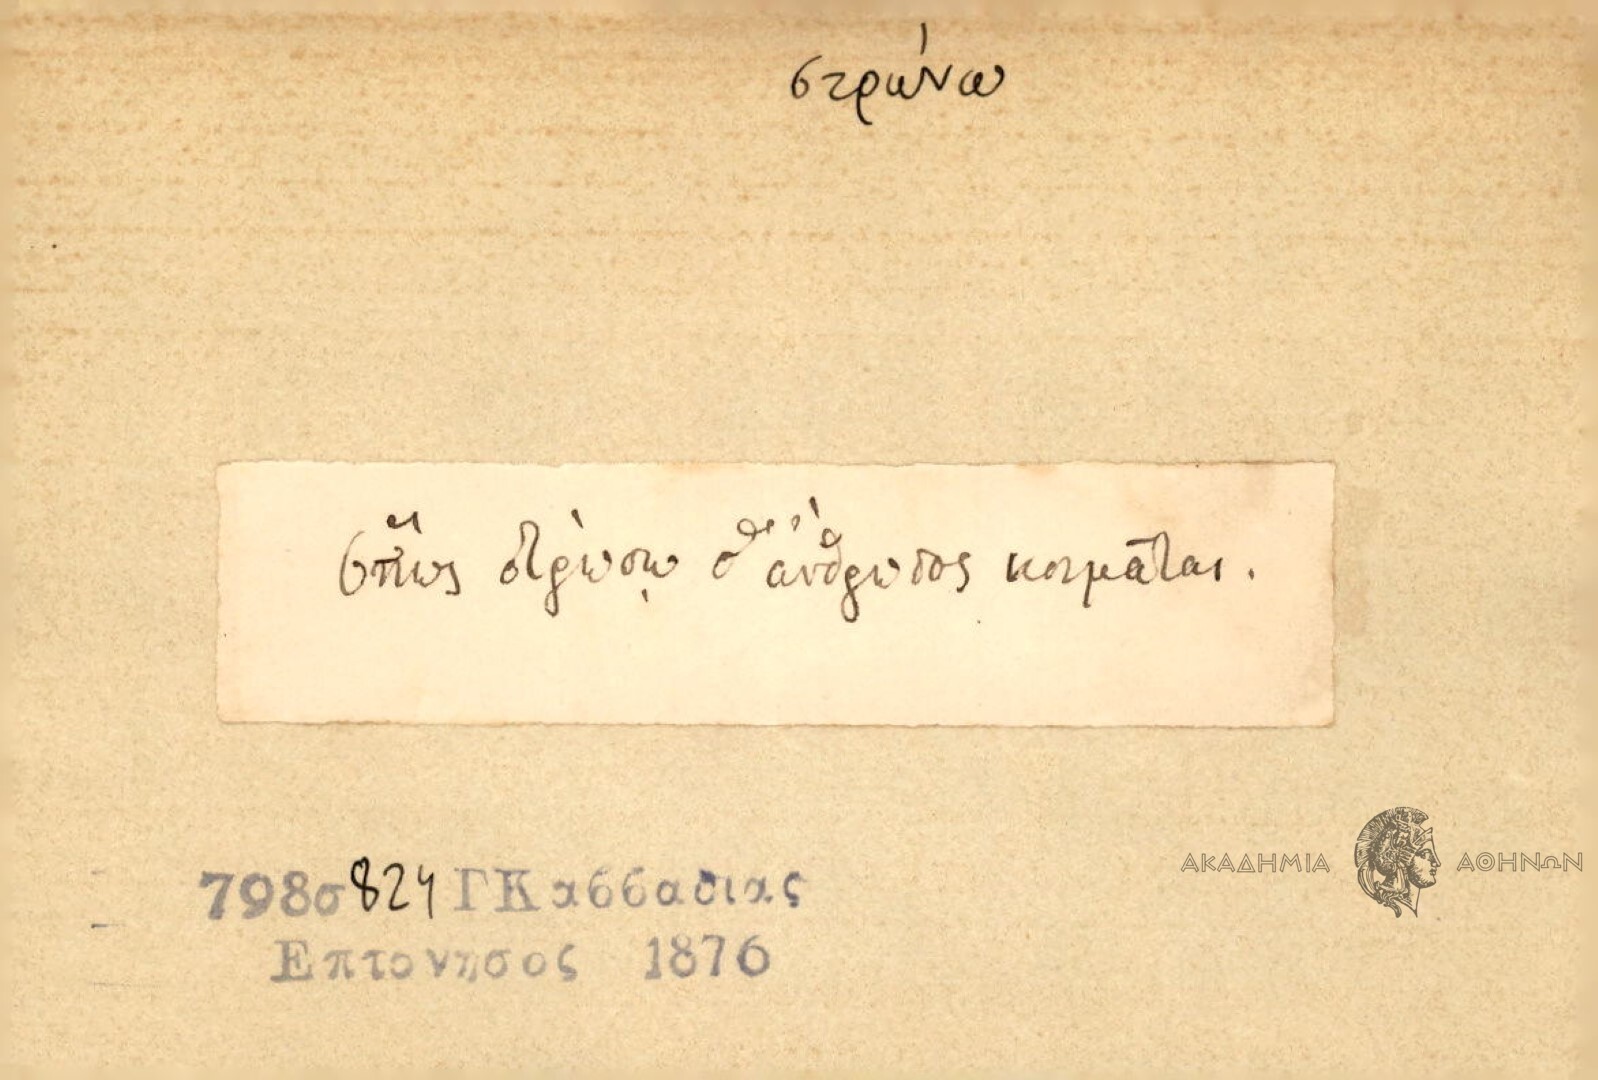 στρώνω
Ὅπως στρώσῃ ὁ ἄνθρωπος κοιμᾶται.
798σ824 ΓΚασσασιας
Επτονησος 1876
ΑΚΑΔΗΜΙΑ ΑΘΗΝΩΝ